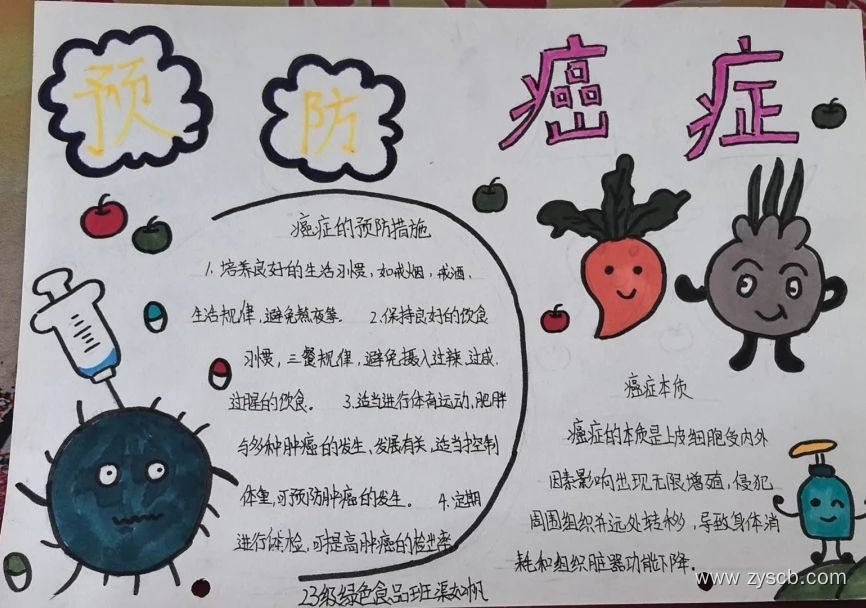 预防癌症
癌症的预防措施
1. 培养良好的生活习惯，如戒烟，戒酒，
生活规律，避免熬夜等。 2.保持良好的饮食
习惯，三餐规律，避免摄入过辣、过咸、
过腥的饮食。 3.适当进行体育运动，肥胖
与多种肿癌的发生、发展有关，适当控制
体重，可预防肿癌的发生。 4.定期
进行体检，可提高肿癌的检出率
23级绿色食品班
癌症本质
癌症的本质是上皮细胞受内外
因素影响出现无限增殖，侵犯
周围组织并远处转移，导致身体消
耗和组织脏器功能下降。
www.zyscb.com